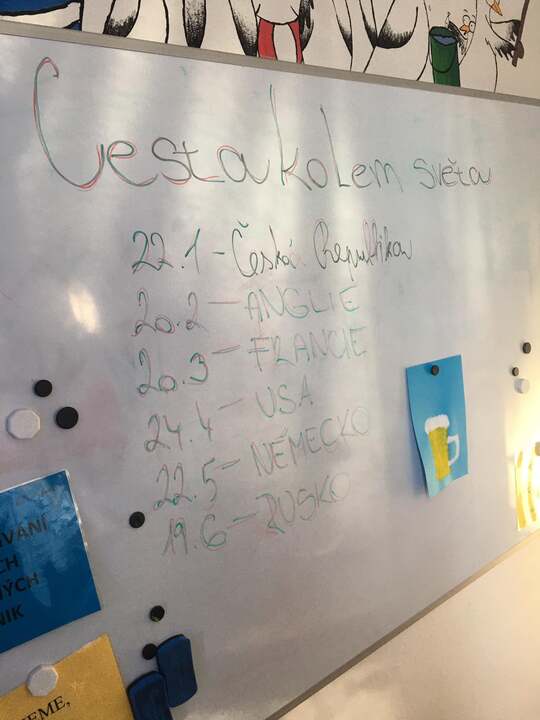 Cesta kolem světa
22.1 - Česká Republika
20.2 - ANGLIE
20.3 - FRANCIE
24.4 - USA
22.5 - NĚMECKO
19.6 - RUSKO
VÁNÍ
CH
NÝCH
NIK
EME,